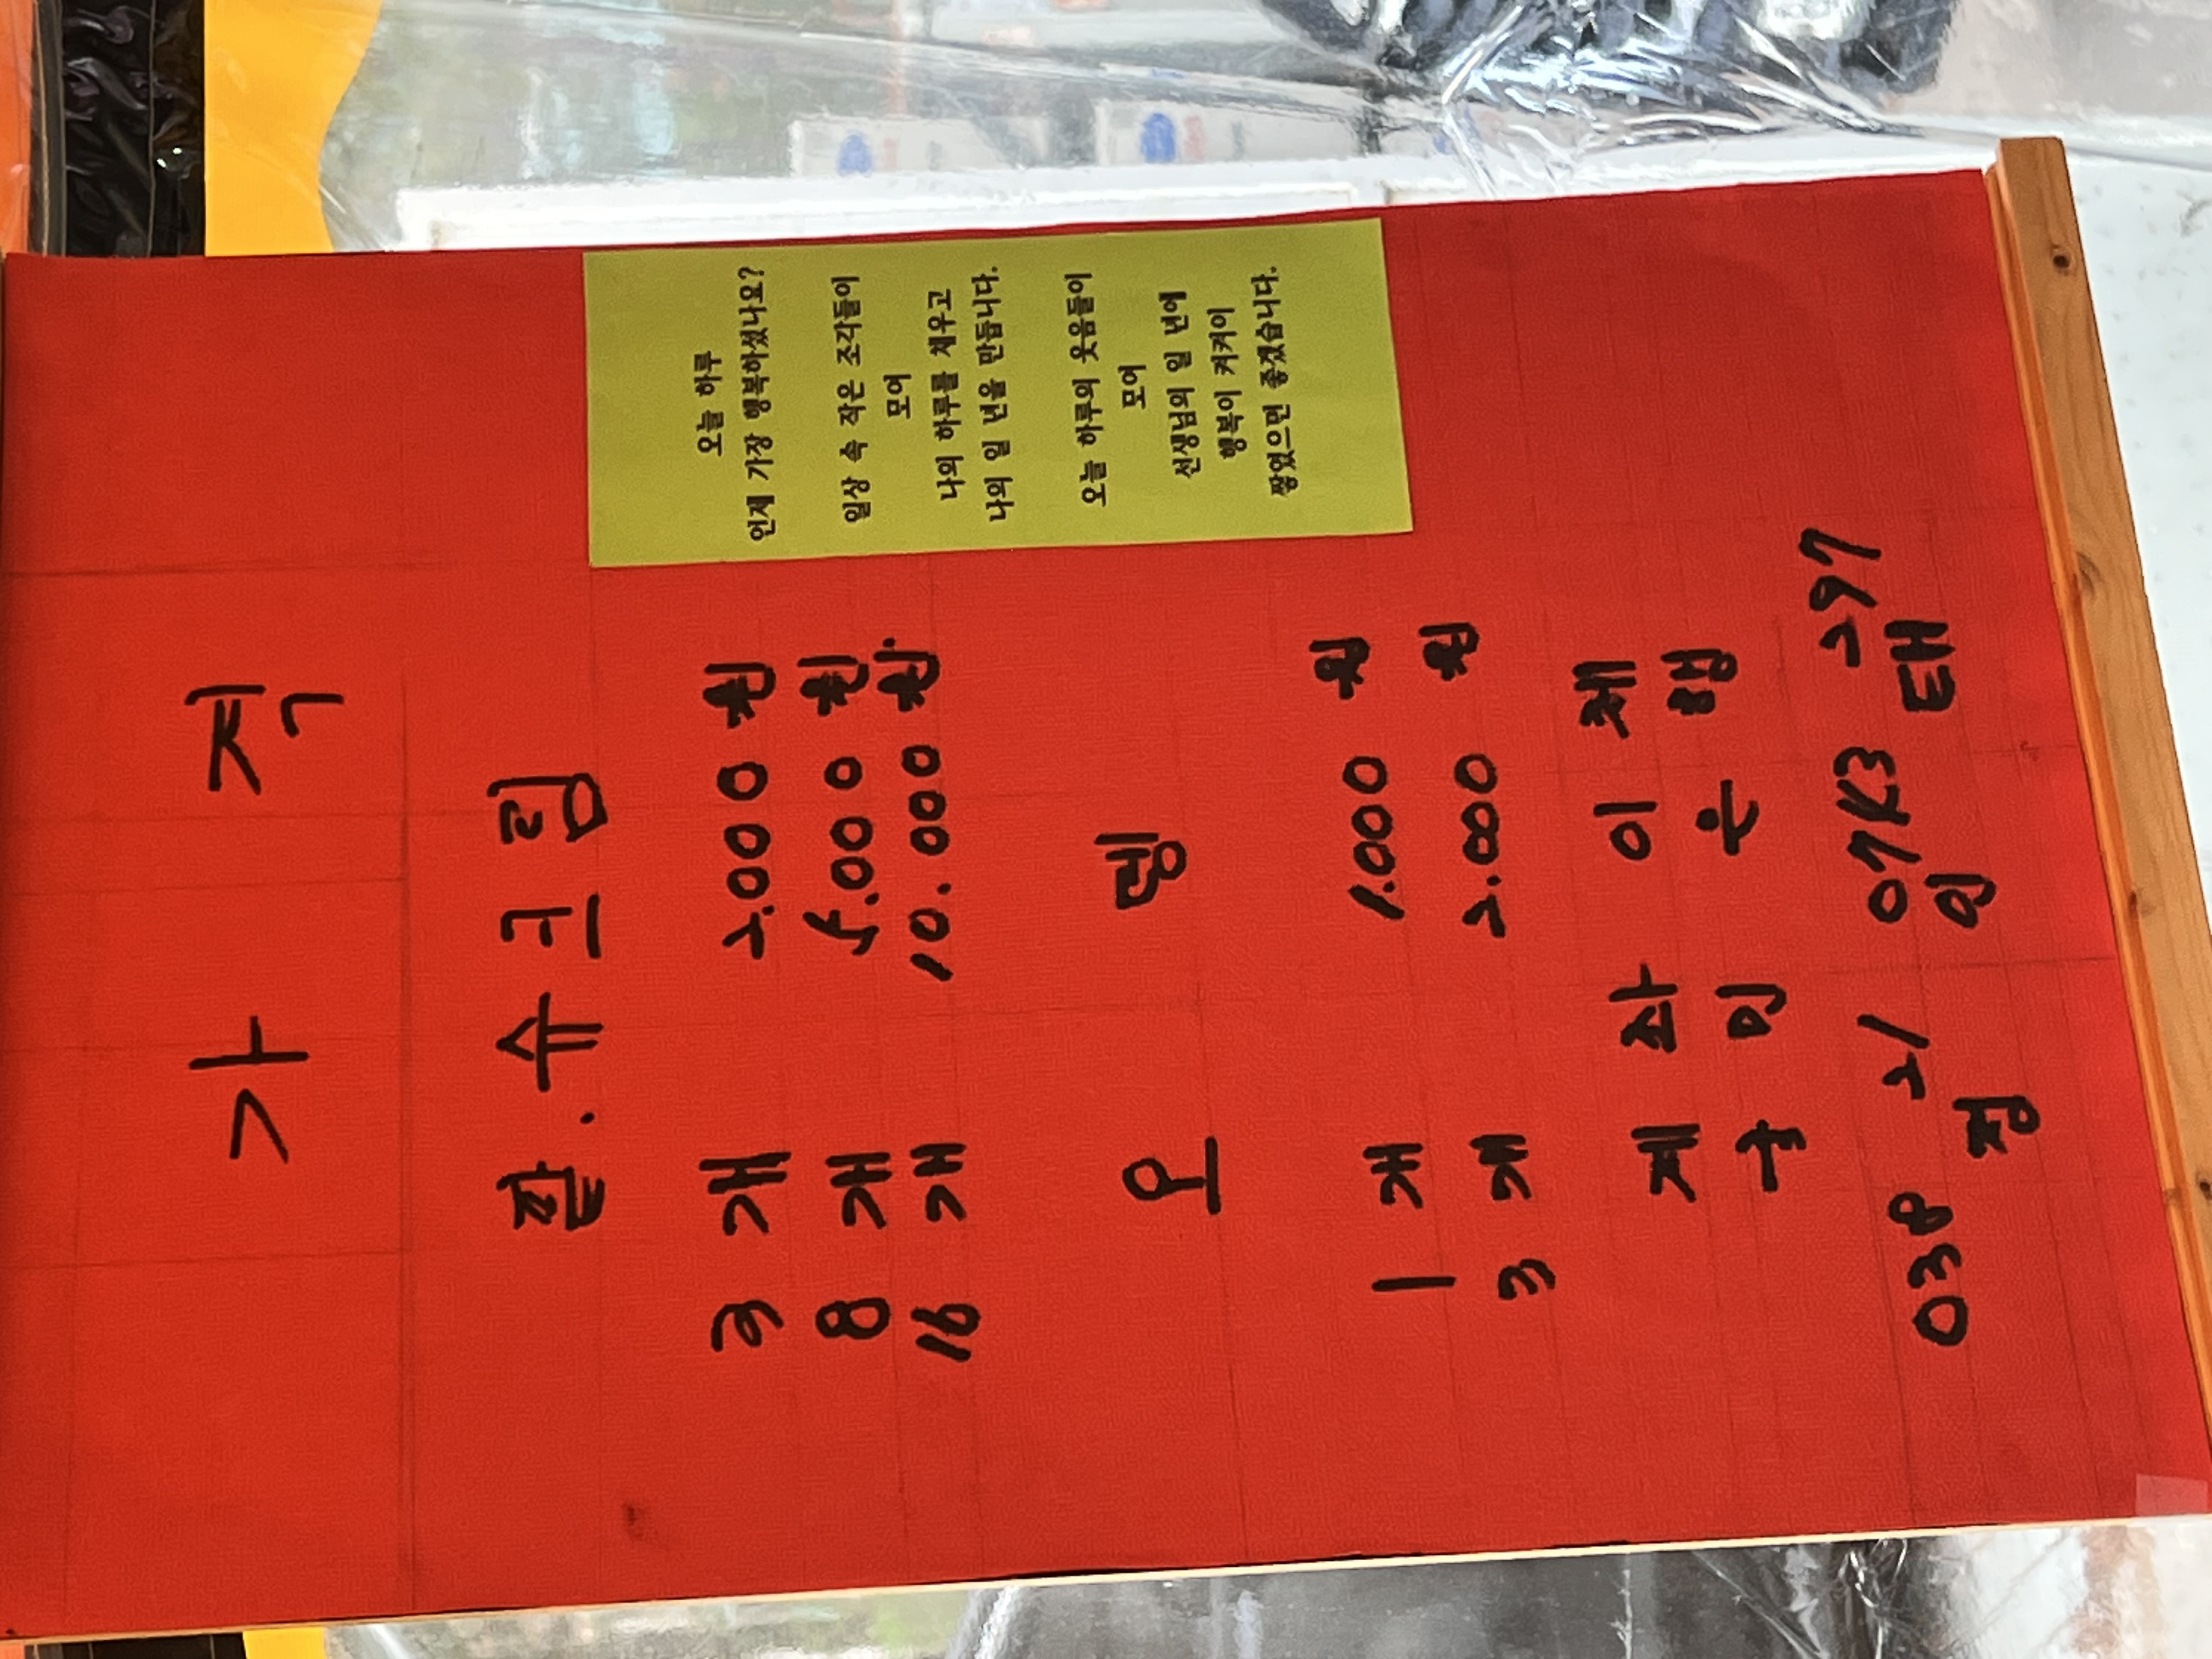 가 격
팥.슈크림
3 개 2.000 원
8 개 5.000 원
16 개 10.000 원
오 뎅
1 개 1.000 원
3 개 2.000 원
계 좌 이 체
국 민 은 행
038 21 297
정 인 태
오늘 하루
언제 가장 행복하셨나요?
일상 속 작은 조각들이
모여
나의 하루를 채우고
나의 일 년을 만듭니다.
오늘 하루의 웃음들이
모여
선생님의 일 년에
행복이 켜켜이
쌓였으면 좋겠습니다.